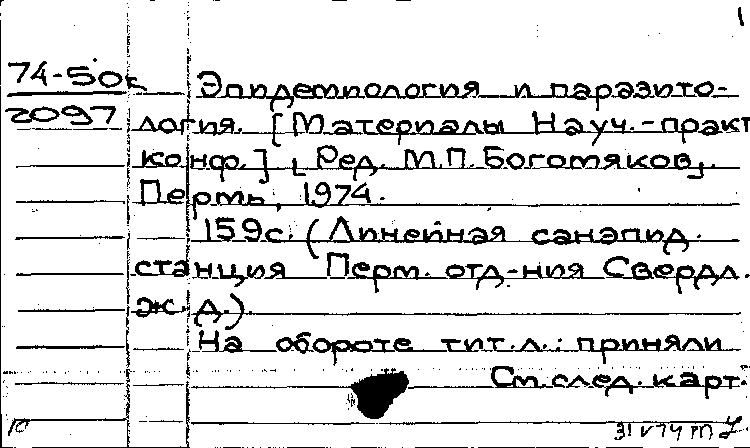 1
74-50к
2097
Эпидемиология и паразито-
логия. [Материалы Науч.-практ
конф.] [Ред. М.П. Боготяков].
Пермь, 1974.
159с. (Линейная санэпид.
станция Перм. отд-ния Свердл.
ж.д.).
На обороте тит.л.: приняли
См. след. карт.
10
31 V 74